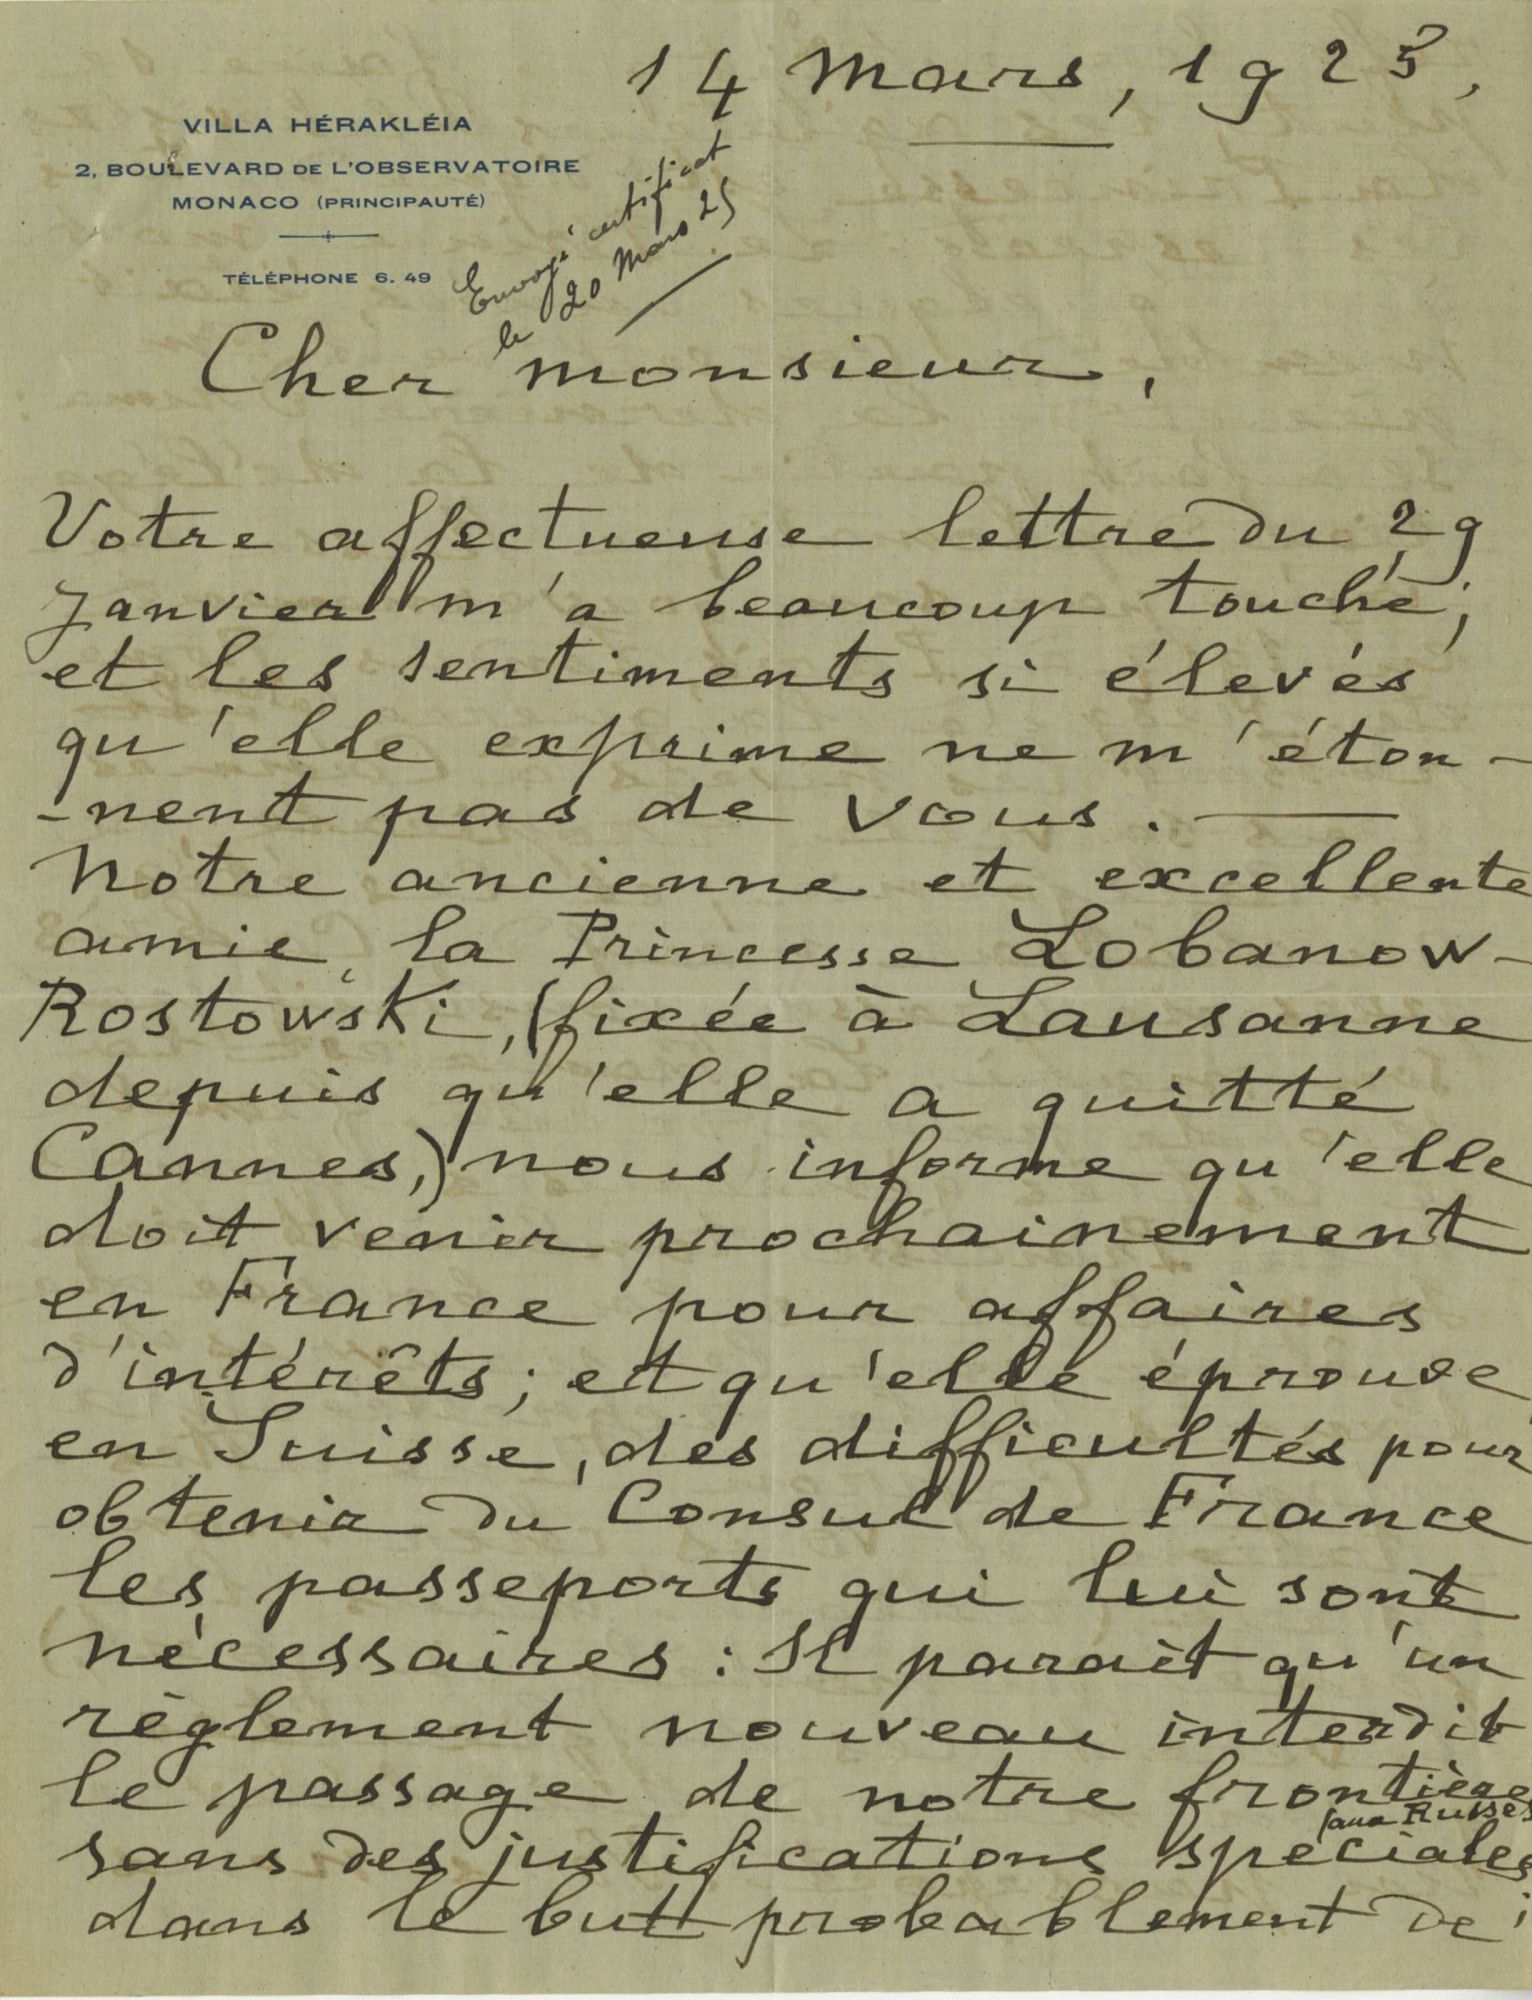 14 Mars, 1925,
VILLA HÉRAKLÉIA
2, BOULEVARD DE L'OBSERVATOIRE
MONACO (PRINCIPAUTÉ)
TÉLÉPHONE 6. 49
Envoyé certificat
le 20 Mars 25
Cher monsieur,
Votre affectueuse lettre du 29
janvier m'a beaucoup touché;
et les sentiments si élevés
qu'elle exprime ne m'éton-
-nent pas de vous.
Notre ancienne et excellente
amie, la Princesse Lobanow-
Rostowski, (fixée à Lausanne
depuis qu'elle a quitté
Cannes,) nous informe qu'elle
doit venir prochainement
en France pour affaires
d'intérêts; et qu'elle éprouve
en Suisse, des difficultés pour
obtenir du Consul de France
les passeports qui lui sont
nécessaires : Il parait qu'un
règlement nouveau interdit
le passage de notre frontière
aux Russes
sans des justifications spéciales
dans le but probablement de